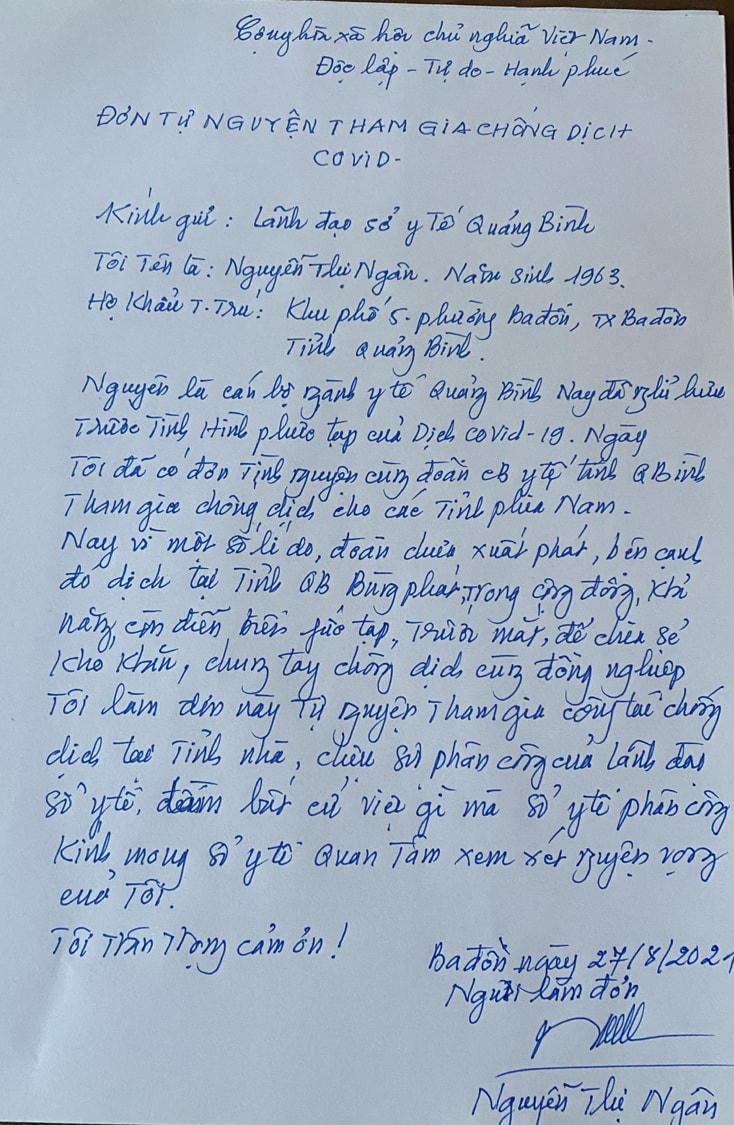 Cộng hòa xã hội chủ nghĩa Việt Nam -
Độc lập - Tự do - Hạnh phúc
ĐƠN TỰ NGUYỆN THAM GIA CHỐNG DỊCH
COVID -
Kính gửi : Lãnh đạo sở y Tế Quảng Bình
Tôi Tên là : Nguyễn Thị Ngân. Năm sinh 1963.
Hộ Khẩu T-Trú : Khu phố 5- phường Ba đồn, TX Ba đồn
Tỉnh Quảng Bình.
Nguyên là cán bộ ngành y tế Quảng Bình Nay đã nghỉ hưu
Trước Tình Hình phức tạp của Dịch covid-19. Ngày
Tôi đã có đơn Tình nguyện cùng đoàn CB y tế tỉnh QBình
Tham gia chống dịch cho các Tỉnh phía Nam -
Nay vì một số lí do, đoàn chưa xuất phát, bên cạnh
đó dịch tại Tỉnh QB Bùng phát, Trong cộng đồng, Khả
năng còn diễn biến fức tạp, Trước mắt, để chia sẻ
Khó Khăn, chung tay chống dịch cùng đồng nghiệp
Tôi làm đơn này Tự nguyện Tham gia công tác chống
dịch tại Tỉnh nhà, chịu sự phân công của Lãnh đạo
Sở y tế, bất cứ việc gì mà Sở y tế phân công
Kính mong Sở y tế Quan Tâm xem xét nguyện vọng
của Tôi.
Tôi Trân Trọng cảm ơn !
Ba đồn ngày 27/8/2021
Người làm đơn
Nguyễn Thị Ngân